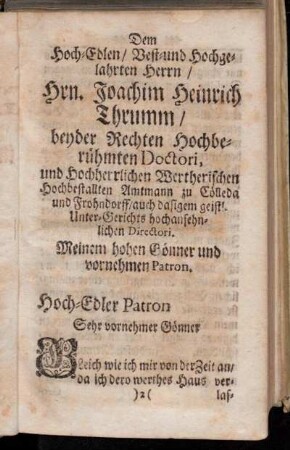 Dem
Hoch-Edlen / Vest-und Hochge-
lahrten Herrn /
Hrn. Joachim Heinrich
Thrumm /
beyder Rechten Hochbe-
rühmten Doctori,
und Hochherrlichen Wertherischen
Hochbestallten Amtmann zu Cölleda
und Frohndorff / auch dasigem geistl.
Unter-Gerichts hochansehn-
lichen Directori.
Meinem hohen Gönner und
vornehmen Patron.
Hoch-Edler Patron
Sehr vornehmer Gönner
Gleich wie ich mir von der Zeit an /
da ich dero werthes Haus ver-
)2( las-